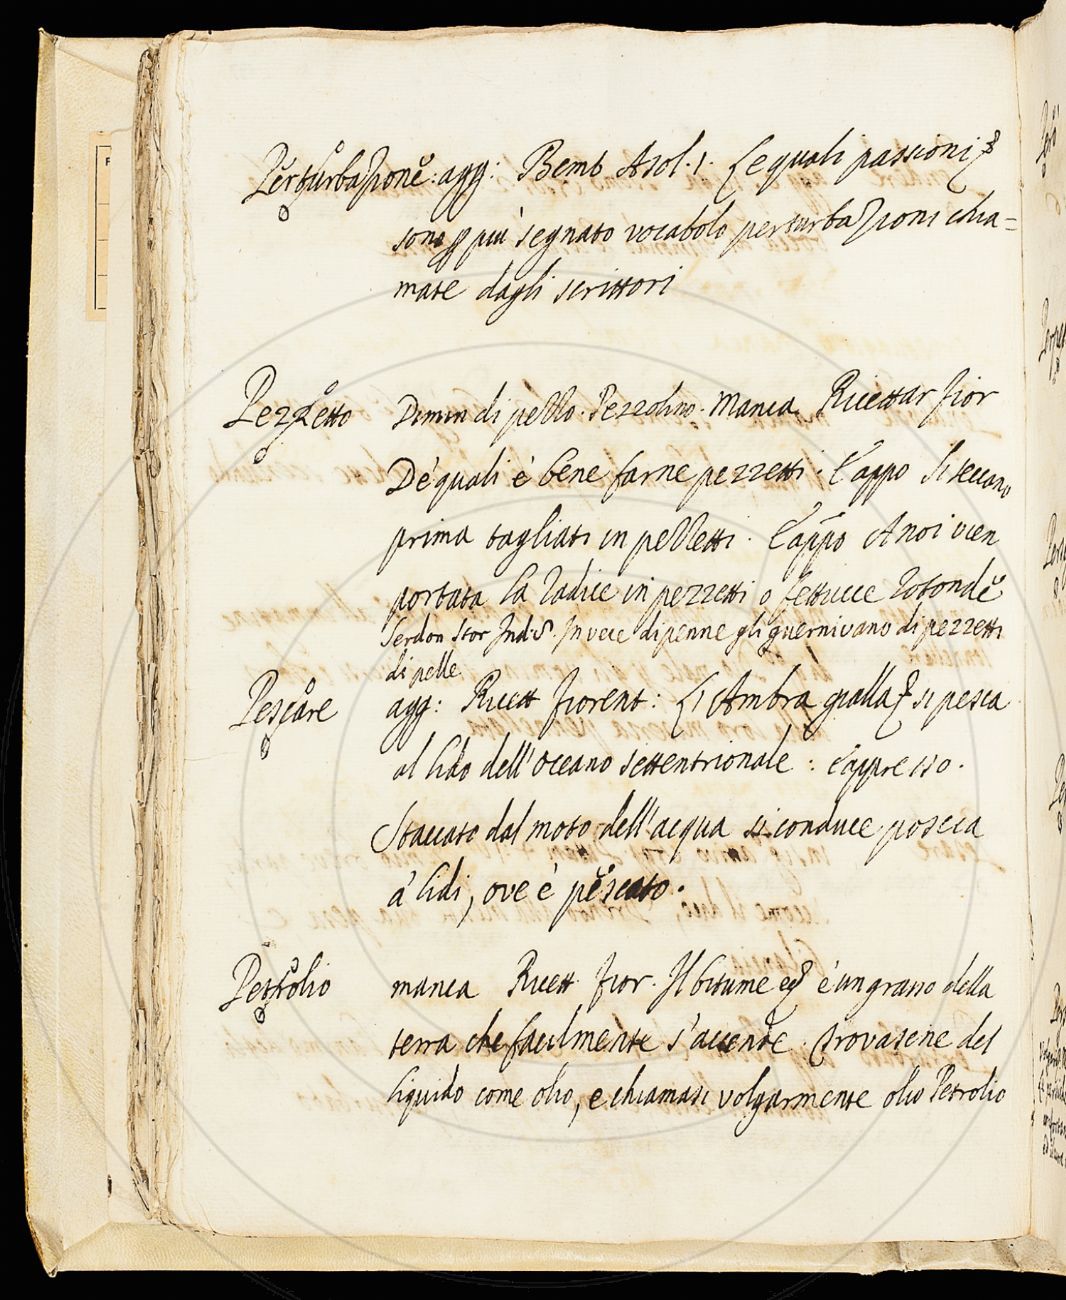 Perturbazione: agg: Bemb Asol. 1. Le quali passioni
sono più segnato vocabolo perturbazioni chia=
mate dagli scrittori
Pezzetto Dimin di pezzo. Pezzolino. Manca Ricettar fior
De' quali è bene farne pezzetti. E appo Si seccano
prima tagliati in pezzetti. E appo A noi vien
portata la radice in pezzetti o fettucce rotonde
Serdon Stor Ind. 8. In vece di penne gli guernivano di pezzetti
di pelle
Pescare agg: Ricett fiorent: L'Ambra gialla si pesca
al lido dell'Oceano settentrionale: E appresso.
Staccato dal moto dell'acqua si conduce poscia
a' lidi, ove è pescato.
Petrolio manca Ricett fior. Il bitume è un grasso della
terra che facilmente s'accende. Trovasene del
liquido come olio, e chiamasi volgarmente olio Petrolio